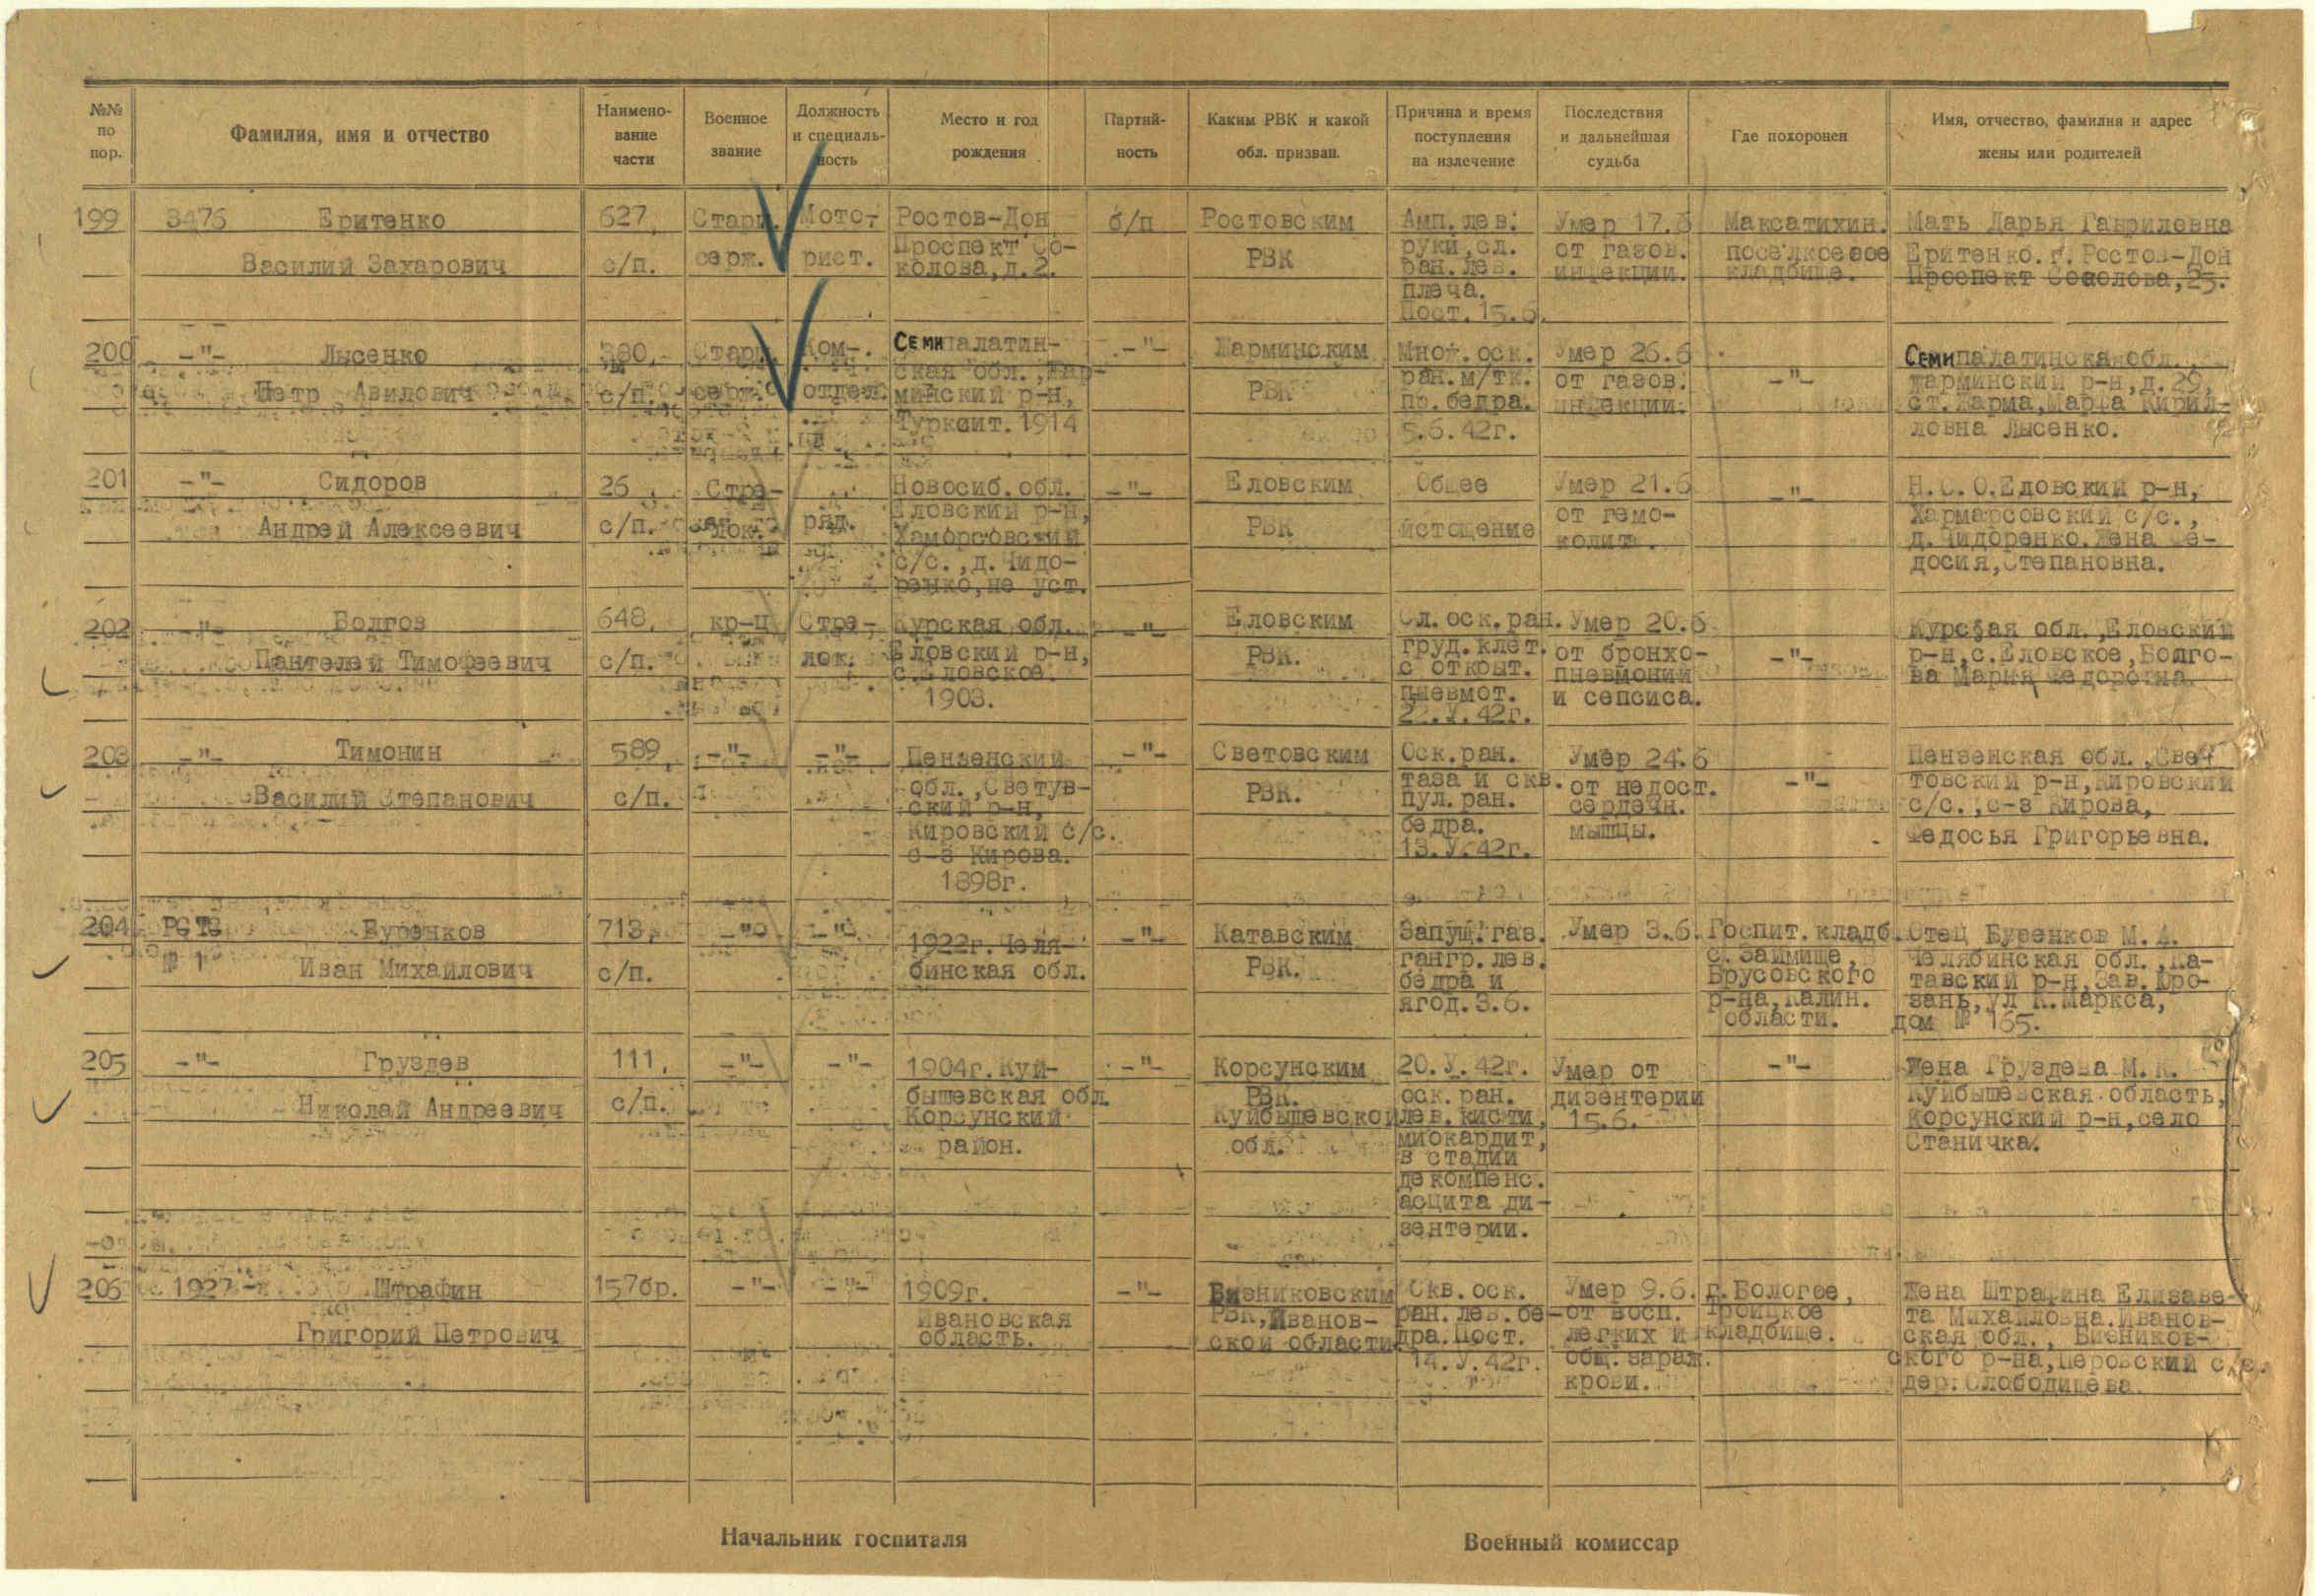 №№ по пор.
Фамилия, имя и отчество
Наимено-
вание
части
Военное
звание
Должность
и специаль-
ность
Место и год
рождения
Партий-
ность
Каким РВК и какой
обл. призван.
Причина и время
поступления
на излечение
Последствия
и дальнейшая
судьба
Где похоронен
Имя, отчество, фамилия и адрес
жены или родителей
199
3476 Еритенко
Василий Захарович
627,
с/п.
Старш.
серж.
Мото-
рист.
Ростов-Дон
Проспект Со-
колова, д.2.
б/п
Ростовским
РВК
Амп. лев.
руки, сл.
ран. лев.
плеча.
Пост. 15.6.
Умер 17.6
от газов.
инфекции.
Максатихин.
поселковое
кладбище.
Мать Дарья Гавриловна
Еритенко. г. Ростов-Дон
Проспект Соколова, 25.
200
-"- Лысенко
Петр Авилович
380,
с/п.
Старш.
серж.
Ком-.
отдел.
Семипалатин-
ская обл., Жар-
минский р-н,
Турксит. 1914
-"-
Жарминским
РВК
Множ. оск.
ран. м/тк.
пр. бедра.
5.6.42г.
Умер 26.6
от газов.
инфекции.
-"-
Семипалатинская обл.,
Жарминский р-н, д. 29,
ст. Жарма, Марфа Кирил-
ловна Лысенко.
201
-"- Сидоров
Андрей Алексеевич
26,
с/п.
Стре-
лок.
ряд.
Новосиб. обл.
Еловский р-н,
Хаморсовский
с/с., д. Чидо-
ренко, не уст.
-"-
Еловским
РВК
Общее
истощение
Умер 21.6
от гемо-
колита.
-"-
Н.С.О. Еловский р-н,
Хармарсовский с/с.,
д. Чидоренко. Жена Фе-
досия, Степановна.
202
-"- Болгов
Пантелей Тимофеевич
648,
с/п.
кр-ц
Стре-
лок.
Курская обл.
Еловский р-н,
с. Еловское.
1903.
-"-
Еловским
РВК.
Сл. оск. ран.
груд. клет.
с открыт.
пневмот.
22.V.42г.
Умер 20.6
от бронхо-
пневмонии
и сепсиса.
-"-
Курская обл., Еловский
р-н, с. Еловское, Болго-
ва Мария Федоровна.
203
-"- Тимонин
Василий Степанович
589,
с/п.
-"-
-"-
Пензенский
обл., Светув-
ский р-н,
Кировский с/с.
с-з Кирова.
1898г.
-"-
Световским
РВК.
Оск. ран.
таза и скв.
пул. ран.
бедра.
13.V.42г.
Умер 24.6
от недост.
сердечн.
мышцы.
-"-
Пензенская обл., Свет
товский р-н, Кировский
с/с., с-з Кирова,
Федосья Григорьевна.
204
РСТС Буренков
№ 1 Иван Михайлович
713,
с/п.
-"-
-"-
1922г. Челя-
бинская обл.
-"-
Катавским
РВК.
Запущ. газ.
гангр. лев.
бедра и
ягод. 3.6.
Умер 3.6.
Госпит. кладб.
с. Займище,
Брусовского
р-на, Калин.
области.
Отец Буренков М. А.
Челябинская обл., Ка-
тавский р-н, Зав. Юро-
зань, ул К. Маркса,
дом № 165.
205
-"- Груздев
Николай Андреевич
111,
с/п.
-"-
-"-
1904г. Куй-
бышевская обл.
Корсунский
район.
-"-
Корсунским
РВК.
Куйбышевской
обл.
20.V.42г.
оск. ран.
лев. кисти,
миокардит,
в стадии
декомпенс.
асцита ди-
зентерии.
Умер от
дизентерии
15.6.
-"-
Жена Груздева М. К.
Куйбышевская область,
Корсунский р-н, село
Станичка.
206
1927 Штрафин
Григорий Петрович
157бр.
-"-
-"-
1909г.
Ивановская
область.
-"-
Визниковским
РВК, Иванов-
ской области
Скв. оск.
ран. лев. бе-
дра. Пост.
14.V.42г.
Умер 9.6.
от восп.
легких и
общ. зараж.
крови.
г. Бологое,
Троицкое
кладбище.
Жена Штрафина Елизаве-
та Михайловна. Иванов-
ская обл., Визников-
ского р-на, Перовский с/с.
дер. Слободищева.
Начальник госпиталя
Военный комиссар